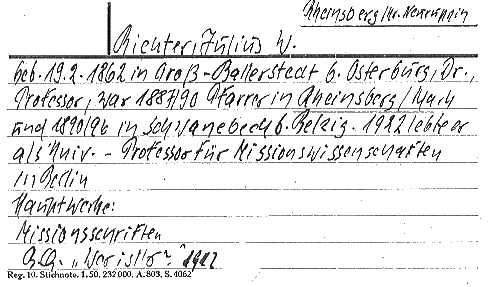 Rheinsberg/Kr. Neuruppin
Richter, Julius W.
geb. 19.2.1862 in Groß-Ballerstedt b. Osterburg, Dr.,
Professor, war 1887/90 Pfarrer in Rheinsberg/Mark
und 1890/96 in Schwanebeck b. Belzig. 1922 lebte er
als Univ.-Professor für Missionswissenschaften
in Berlin
Hauptwerke:
Missionsschriften
"Wer ist's?" 1922
Reg. 10. Stichnote. I. 50. 232000. A. 803. S. 4062